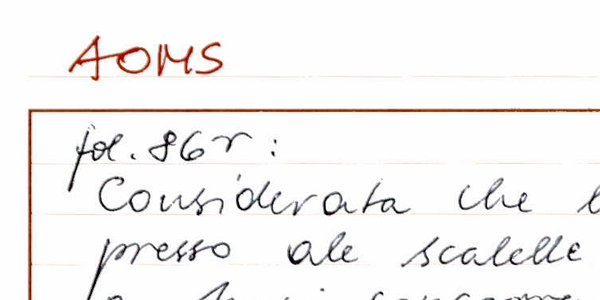 AOMS
fol. 86r:
Considerata che
presso ale scalelle